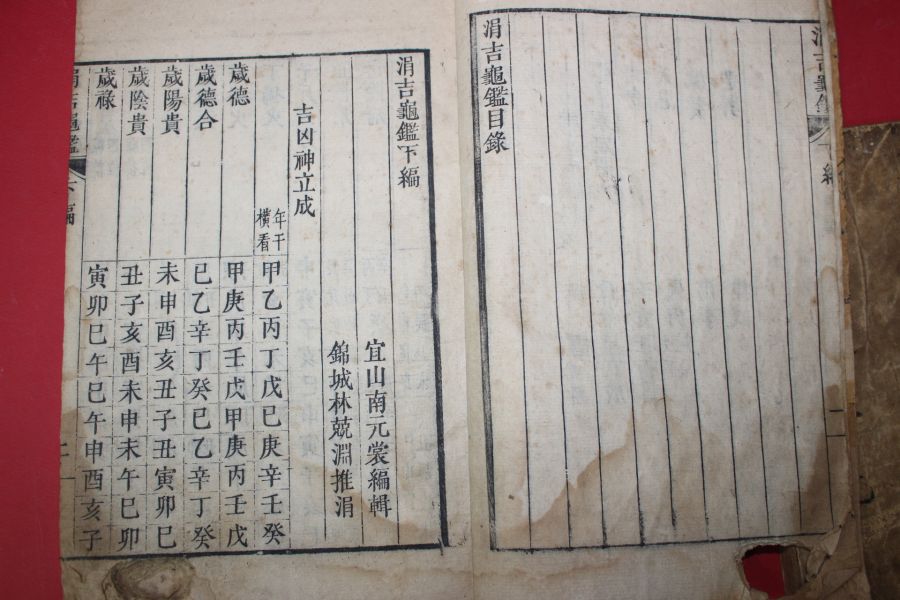 涓吉龜鑑
下編
一
涓吉龜鑑目錄
涓吉龜鑑下編
宜山南元裳編輯
錦城林兢淵推涓
吉凶神立成
年干橫看
甲乙丙丁戊己庚辛壬癸
歲德
甲庚丙壬戊甲庚丙壬戊
歲德合
己乙辛丁癸己乙辛丁癸
歲陽貴
未申酉亥丑子丑寅卯巳
歲陰貴
丑子亥酉未申未午巳卯
歲祿
寅卯巳午巳午申酉亥子
涓吉龜鑑
下編